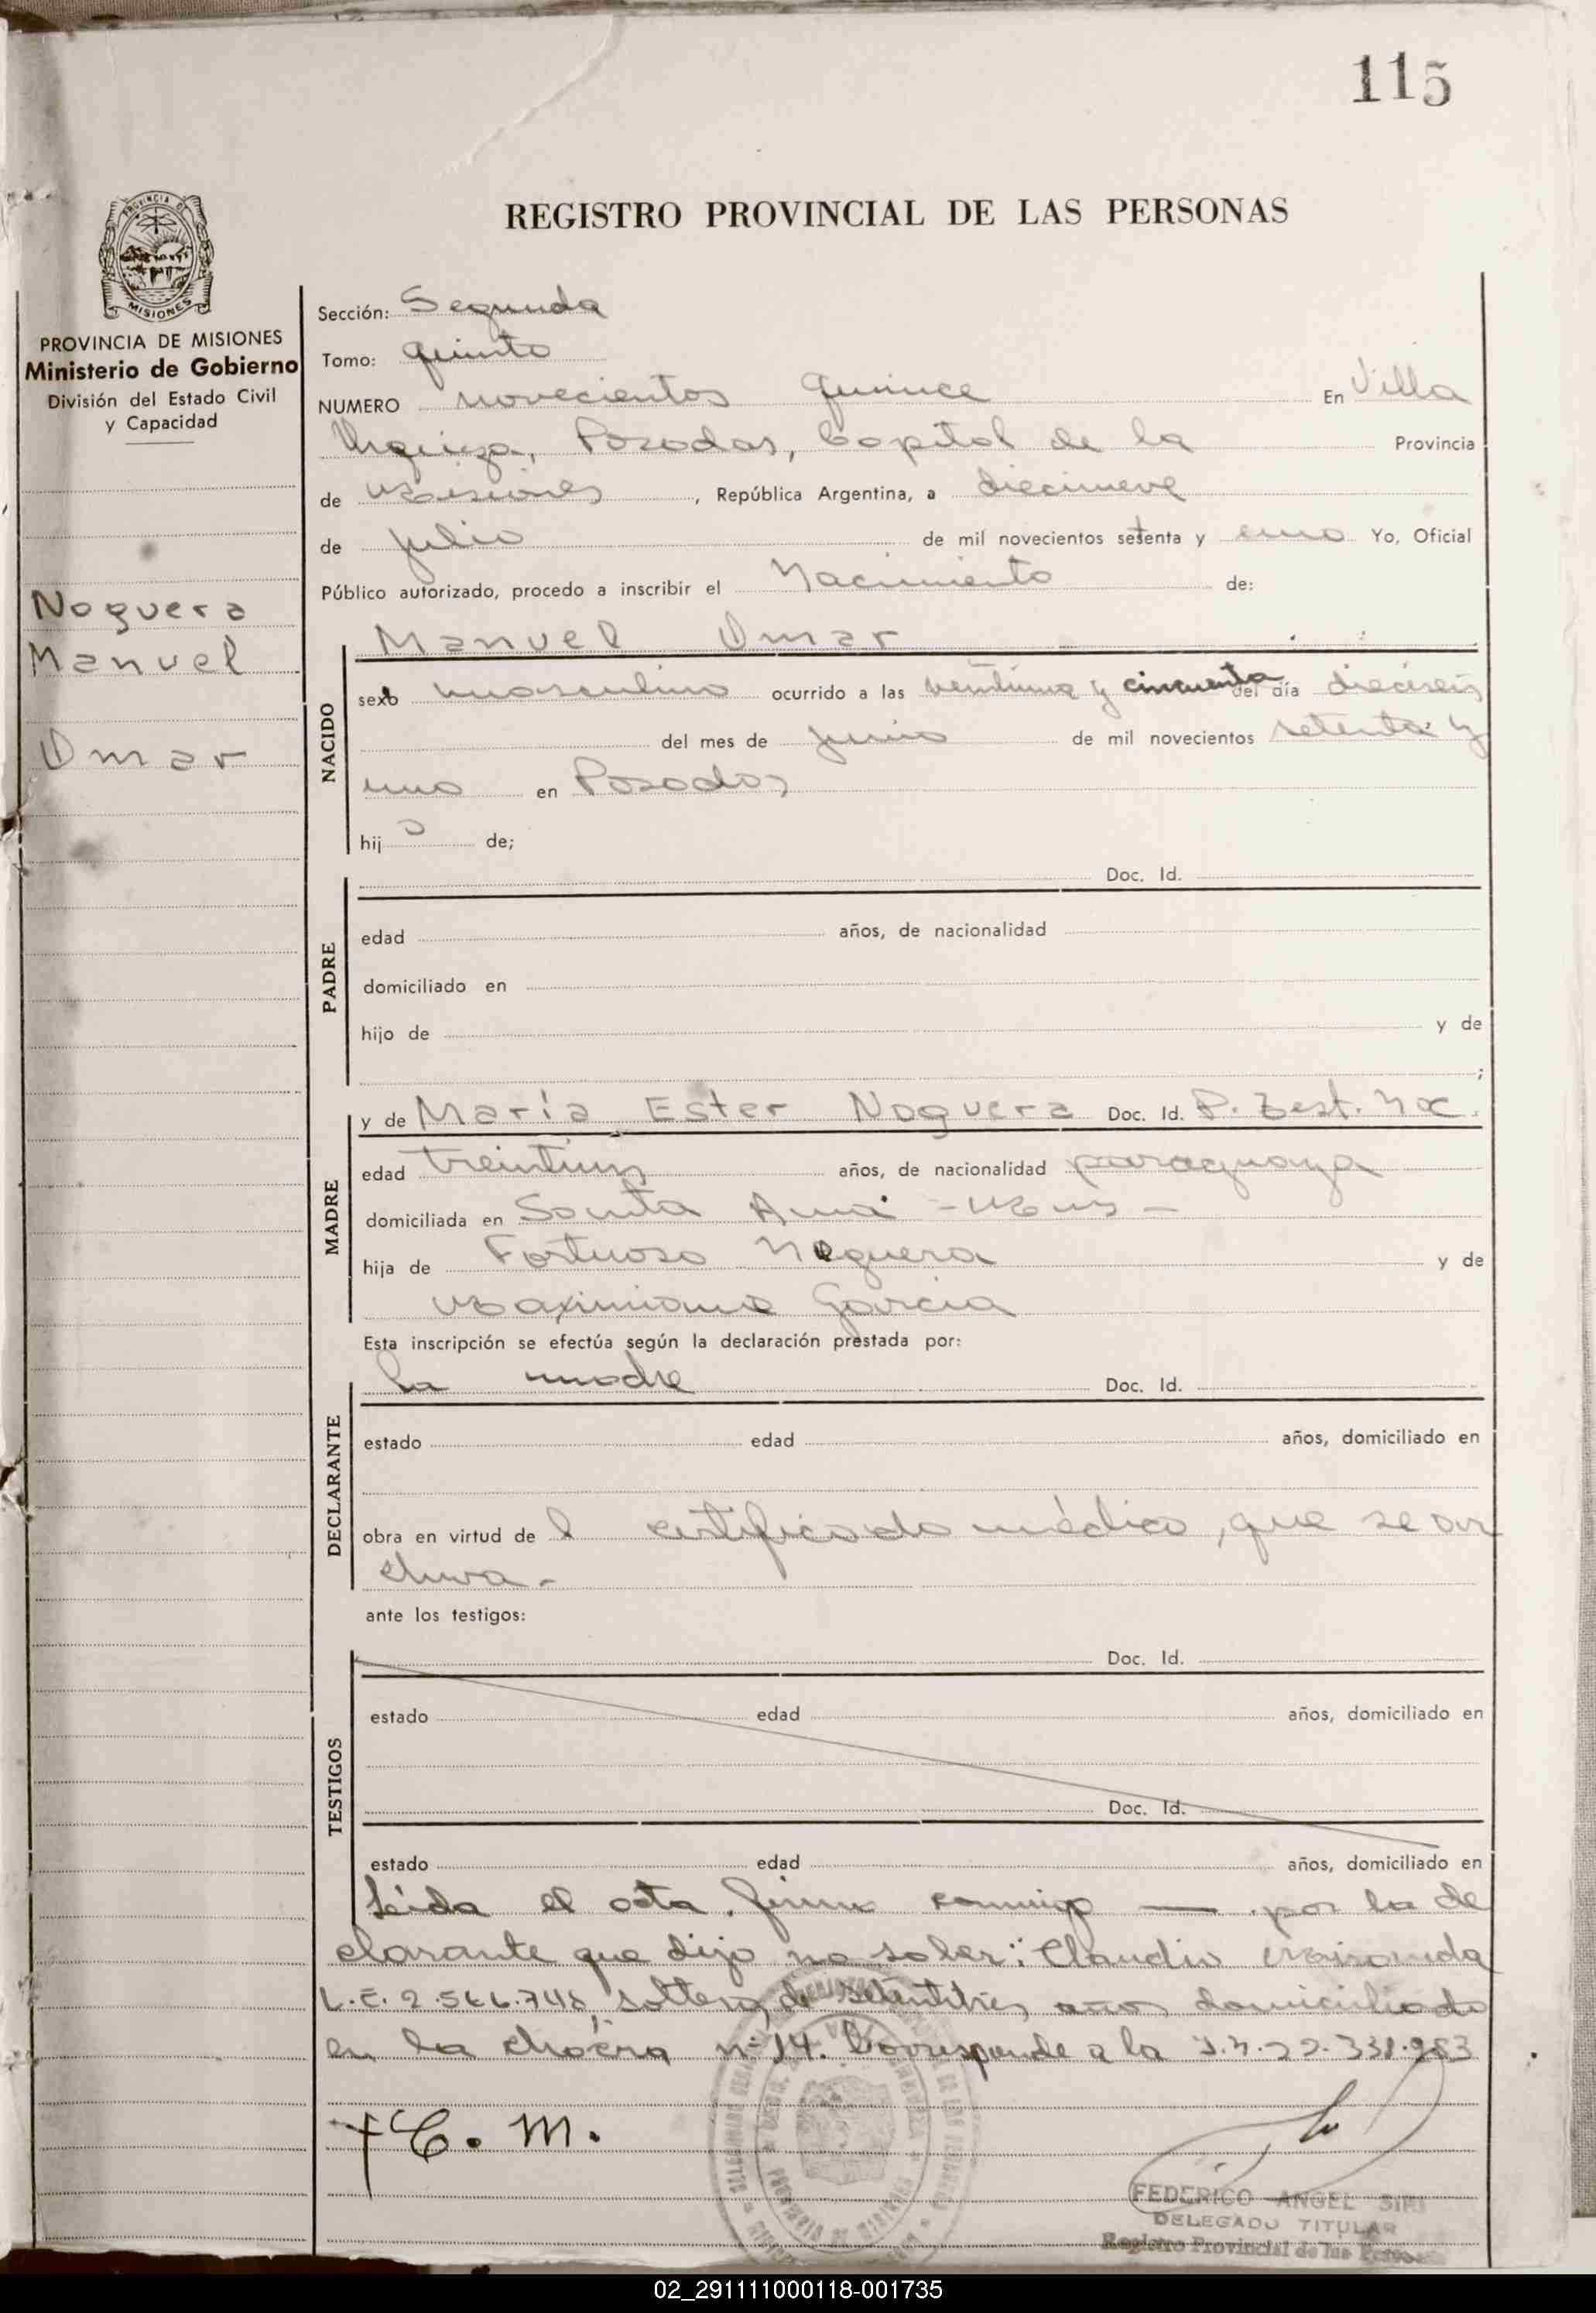 115
REGISTRO PROVINCIAL DE LAS PERSONAS
PROVINCIA DE
MISIONES
PROVINCIA DE MISIONES
Ministerio de Gobierno
División del Estado Civil
y Capacidad
Noguera
Manuel
Omar
Sección: Segunda
Tomo: Quinto
NUMERO novecientos quince En Villa
Urquiza, Posadas, Capital de la Provincia
de Misiones, República Argentina, a diecinueve
de julio de mil novecientos setenta y uno Yo, Oficial
Público autorizado, procedo a inscribir el Nacimiento de:
NACIDO
Manuel Omar
sexo masculino ocurrido a las veintiuna y cincuenta del día dieciseis
del mes de junio de mil novecientos setenta y
uno en Posadas
hijo de;
PADRE
Doc. Id.
edad años, de nacionalidad
domiciliado en
hijo de y de
;
MADRE
y de María Ester Noguera Doc. Id. P.
edad treintiun años, de nacionalidad paraguaya
domiciliada en Santa Ana - Mnes -
hija de Fortuoso Noguera y de
Maximiana Garcia
Esta inscripción se efectúa según la declaración prestada por:
DECLARANTE
la madre Doc. Id.
estado edad años, domiciliado en
obra en virtud de l certificado médico, que se ar
chiva.-
ante los testigos:
TESTIGOS
Doc. Id.
estado edad años, domiciliado en
Doc. Id.
estado edad años, domiciliado en
Leída el acta. firma conmigo — por la de
clarante que dijo no saber: Claudio Maidana
L.E. 2.566.748, soltero, de setentitres años domiciliado
en la chacra nº 14. Corresponde a la 22.331.983
C. M.
FEDERICO ANGEL SIRI
DELEGADO TITULAR
Registro Provincial de las Personas
02_291111000118-001735